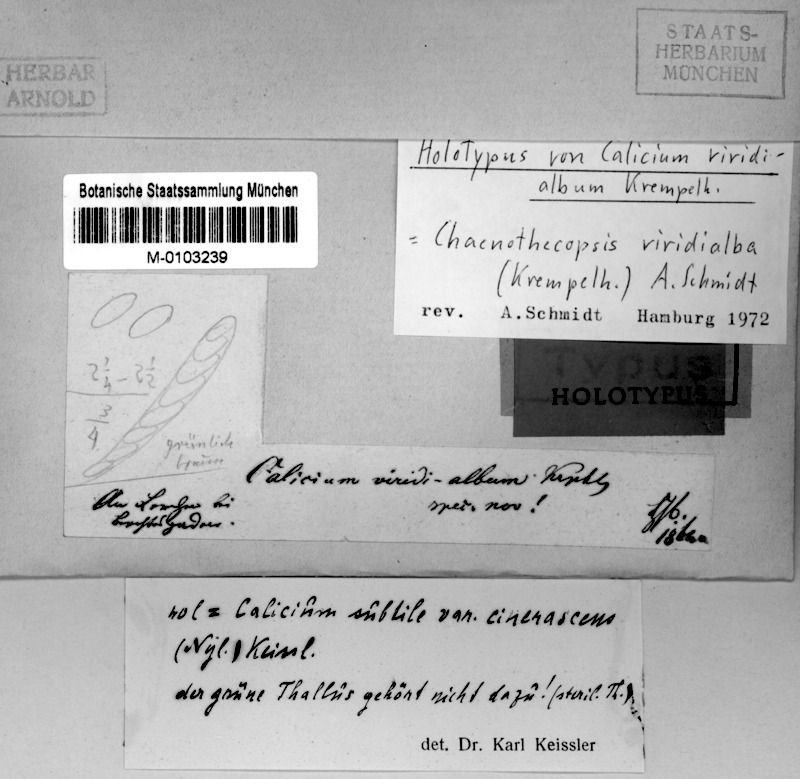 STAATS-
HERBARIUM
MÜNCHEN
HERBAR
ARNOLD
Holotypus von Calicium viridi-
album Krempelh.
= Chaenothecopsis viridialba
(Krempelh.) A. Schmidt
rev. A. Schmidt Hamburg 1972
Botanische Staatssammlung München
M-0103239
Typus
HOLOTYPUS
2 1/4 - 2 1/2
3/4
grünlich
braun
Calicium viridi-album
spec. nov!
An Lerchen bei
Berchtesgaden.
= Calicium subtile var. cinerascens
(Nyl.) Keissl.
der grüne Thallus gehört nicht dazu! (steril. Th.)
det. Dr. Karl Keissler